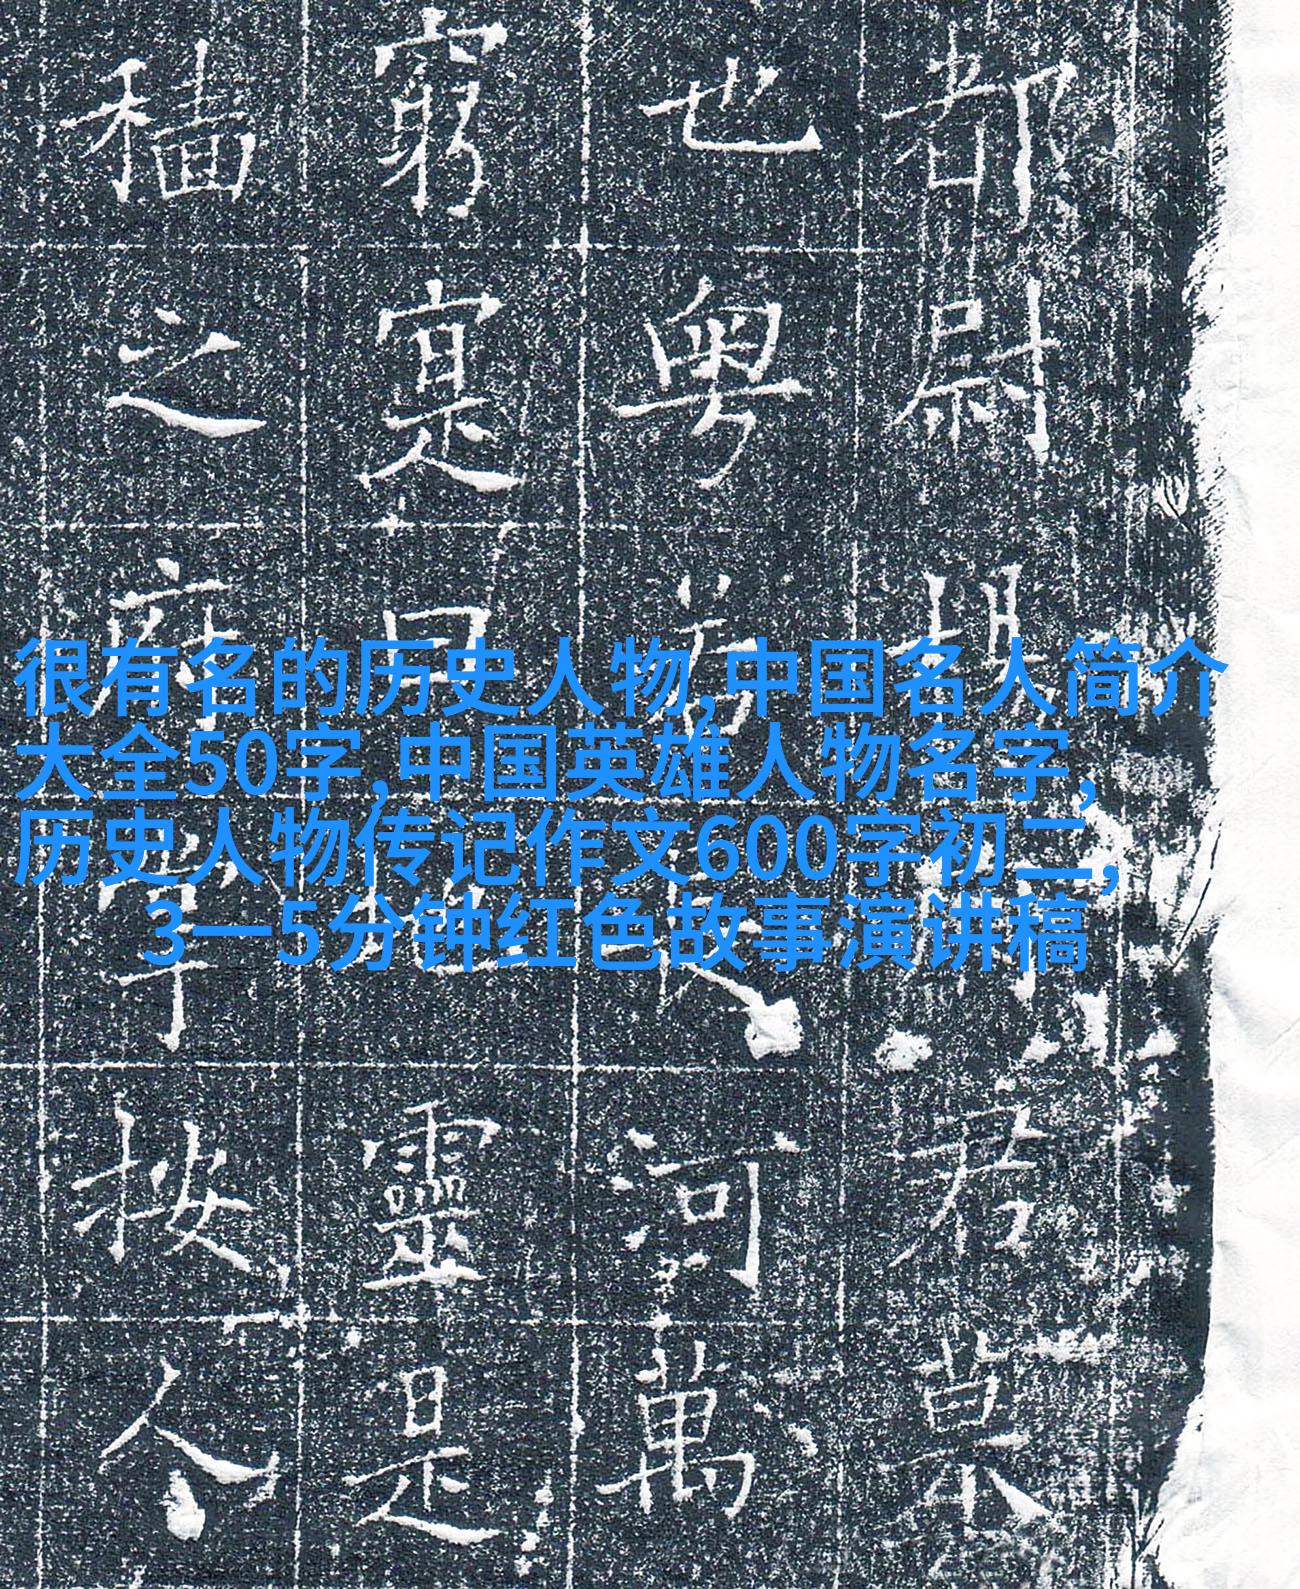 很有名的历史人物,中国名人简介
大全50字,中国英雄人物名字,
历史人物传记作文600字初二,
3一5分钟红色故事演讲稿
都尉君
也粤河萬
窮寔曰靈是
穡之府按人